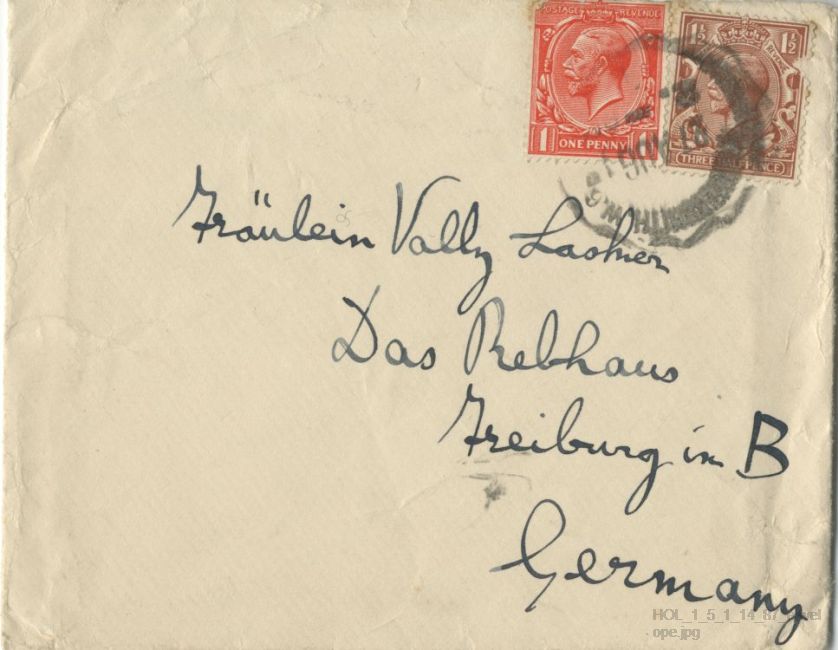 POSTAGE REVENUE
1 ONE PENNY 1
1½ 1½
THREE HALF PENCE
Fräulein Vally Lachner
Das Rebhaus
Freiburg in B
Germany
HOL_1_5_1_14_87_envel
ope.jpg